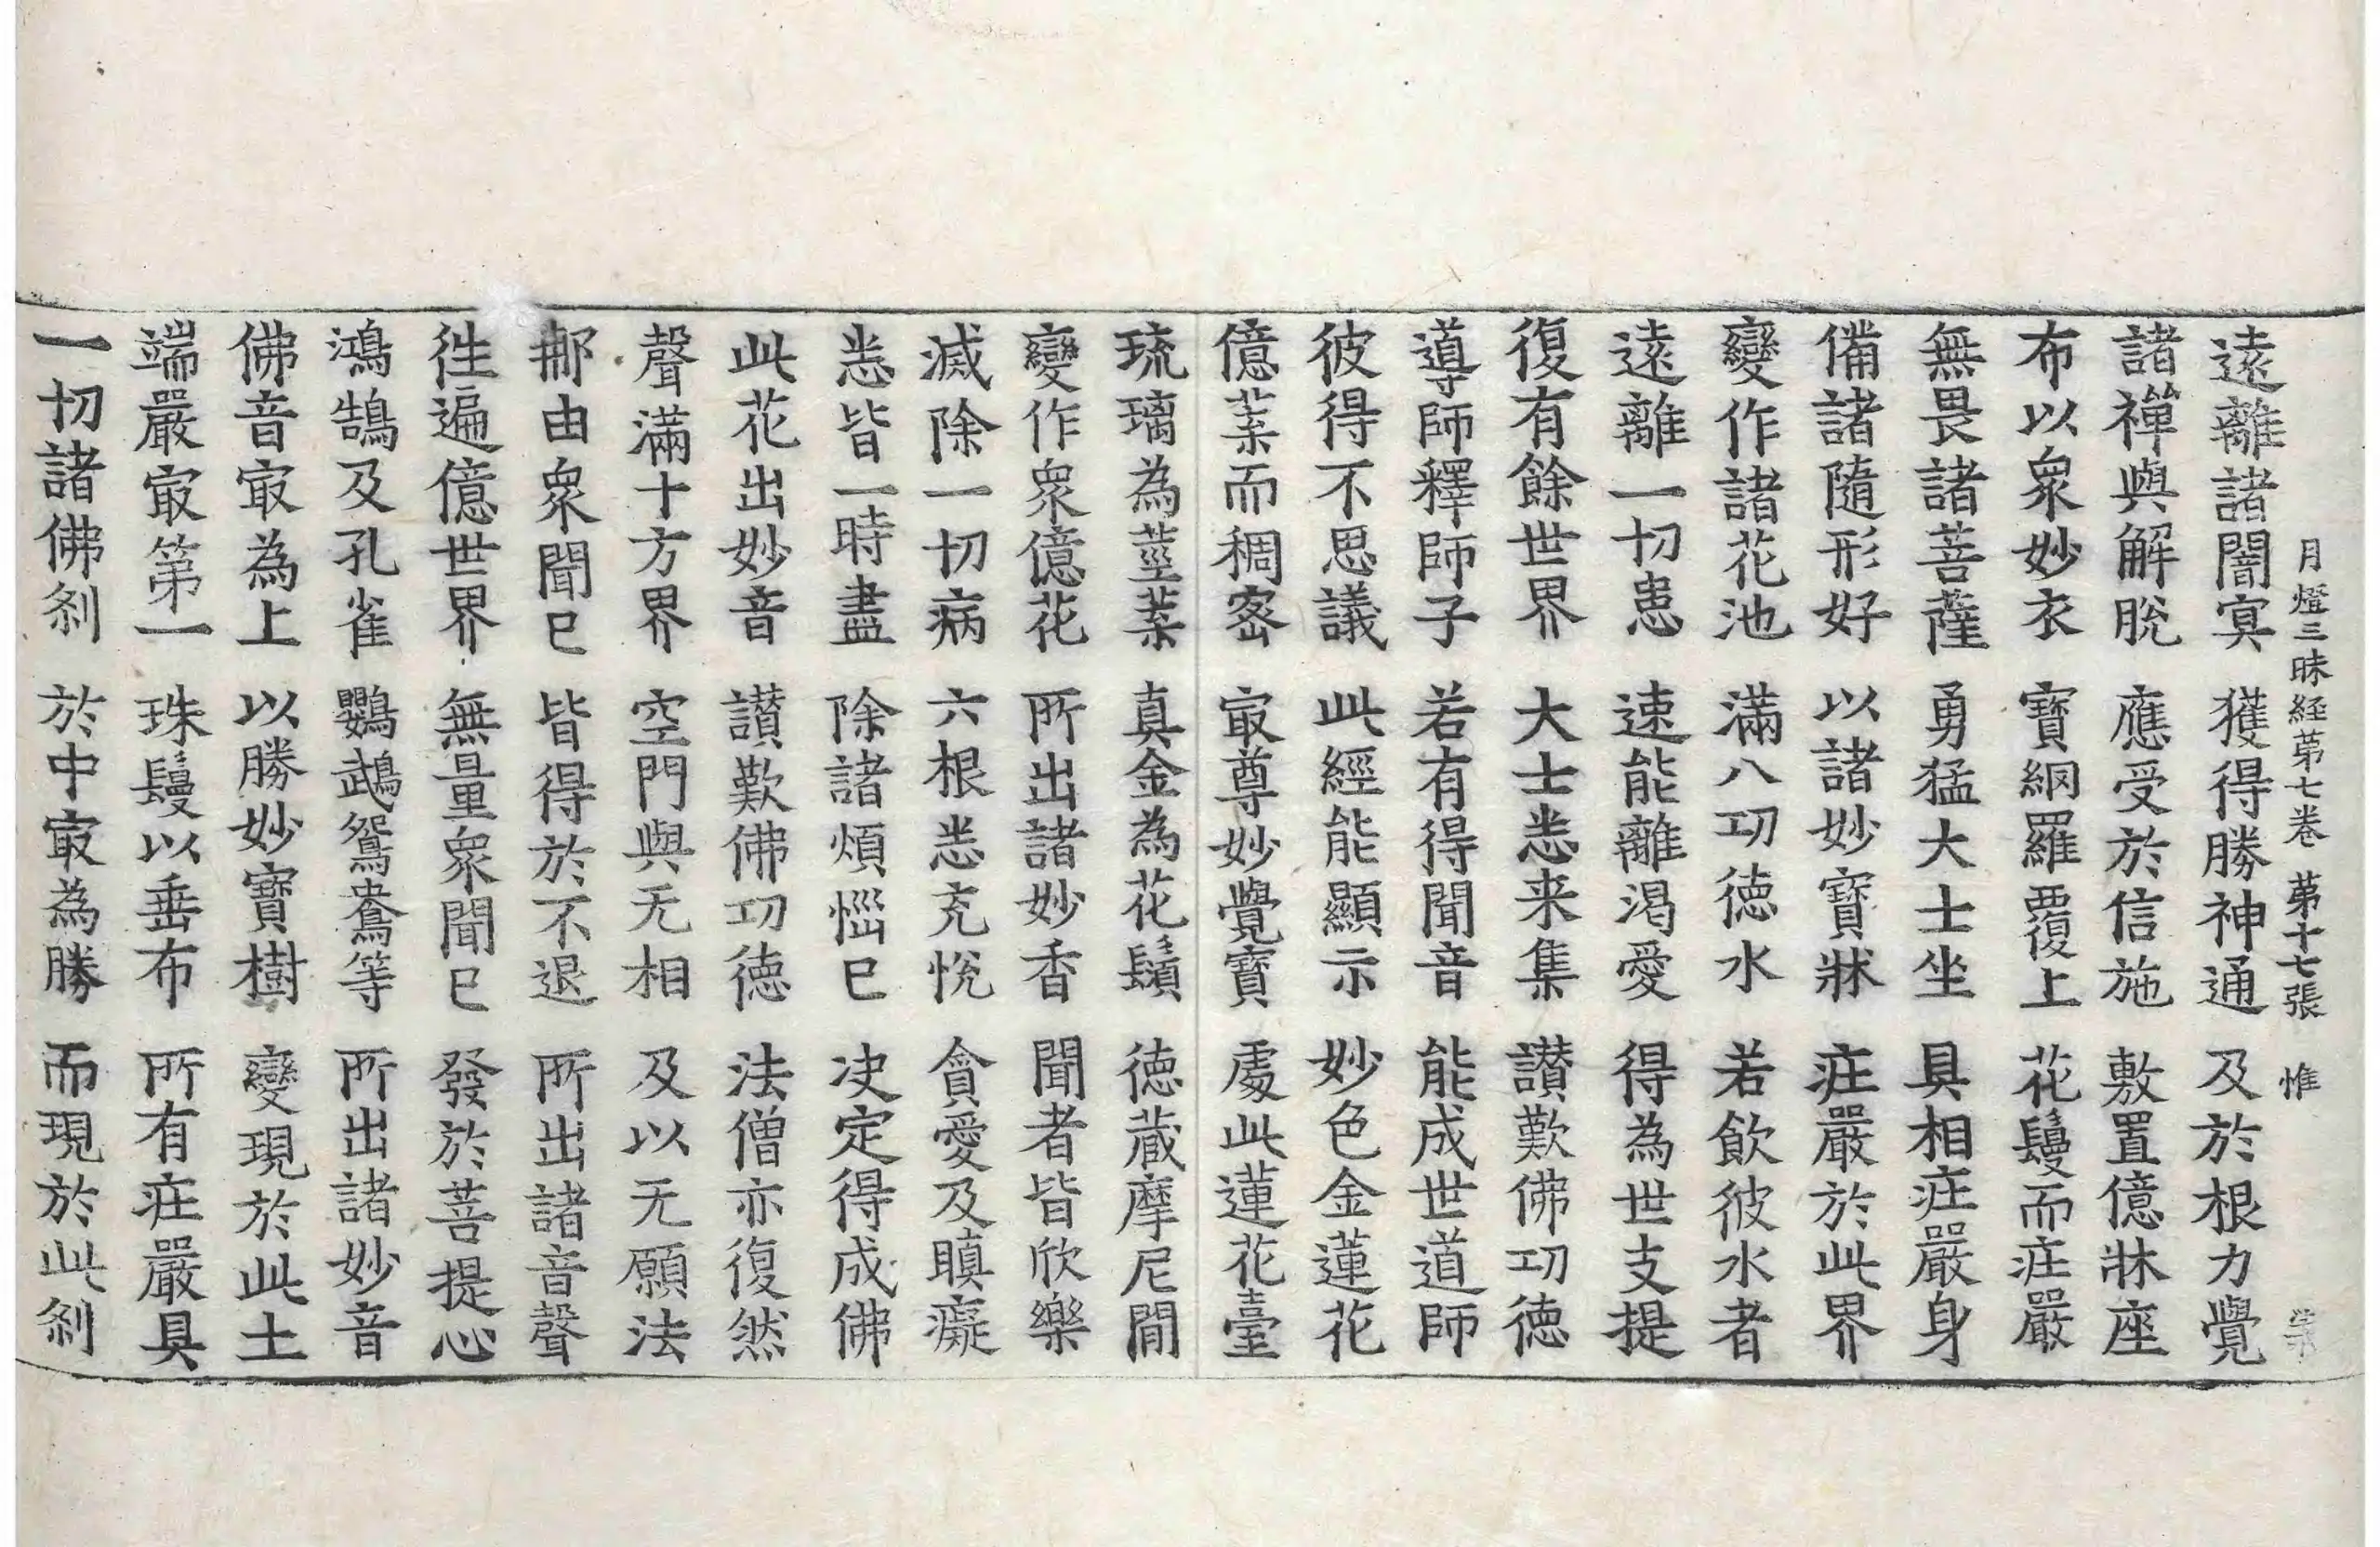 月燈三昧経苐七卷 苐十七張 惟
逺離諸闇㝠 獲得勝神通 及於根力覺
諸禪與解脫 應受於信施 敷置億牀座
布以衆妙衣 寶網羅覆上 花鬘而疘嚴
無畏諸菩薩 勇猛大士坐 具相疘嚴身
備諸隨形好 以諸妙寶牀 疘嚴於此界
變作諸花池 滿八㓛德水 若飲彼水者
逺離一切患 速能離渴愛 得為世支提
復有餘世界 大士悉来集 讃歎佛㓛德
導師釋師子 若有得聞音 能成世道師
彼得不思議 此經能顯示 妙色金蓮花
億葉而稠密 㝡尊妙覺寶 處此蓮花臺
琉璃為莖葉 真金為花鬚 德蔵摩尼閒
變作衆億花 所出諸妙香 聞者皆欣樂
滅除一切病 六根悉充悅 貪愛及瞋癡
悉皆一時盡 除諸煩惱已 决定得成佛
此花出妙音 讃歎佛㓛德 法僧亦復然
聲滿十方界 空門與无相 及以无願法
那由衆聞已 皆得於不退 所出諸音聲
徃遍億世界 無量衆聞已 發於菩提心
鴻鵠及孔雀 鸚鵡鴛鴦等 所出諸妙音
佛音㝡為上 以勝妙寶樹 變現於此土
端嚴㝡苐一 珠鬘以垂布 所有疘嚴具
一切諸佛刹 於中㝡為勝 而現於此刹